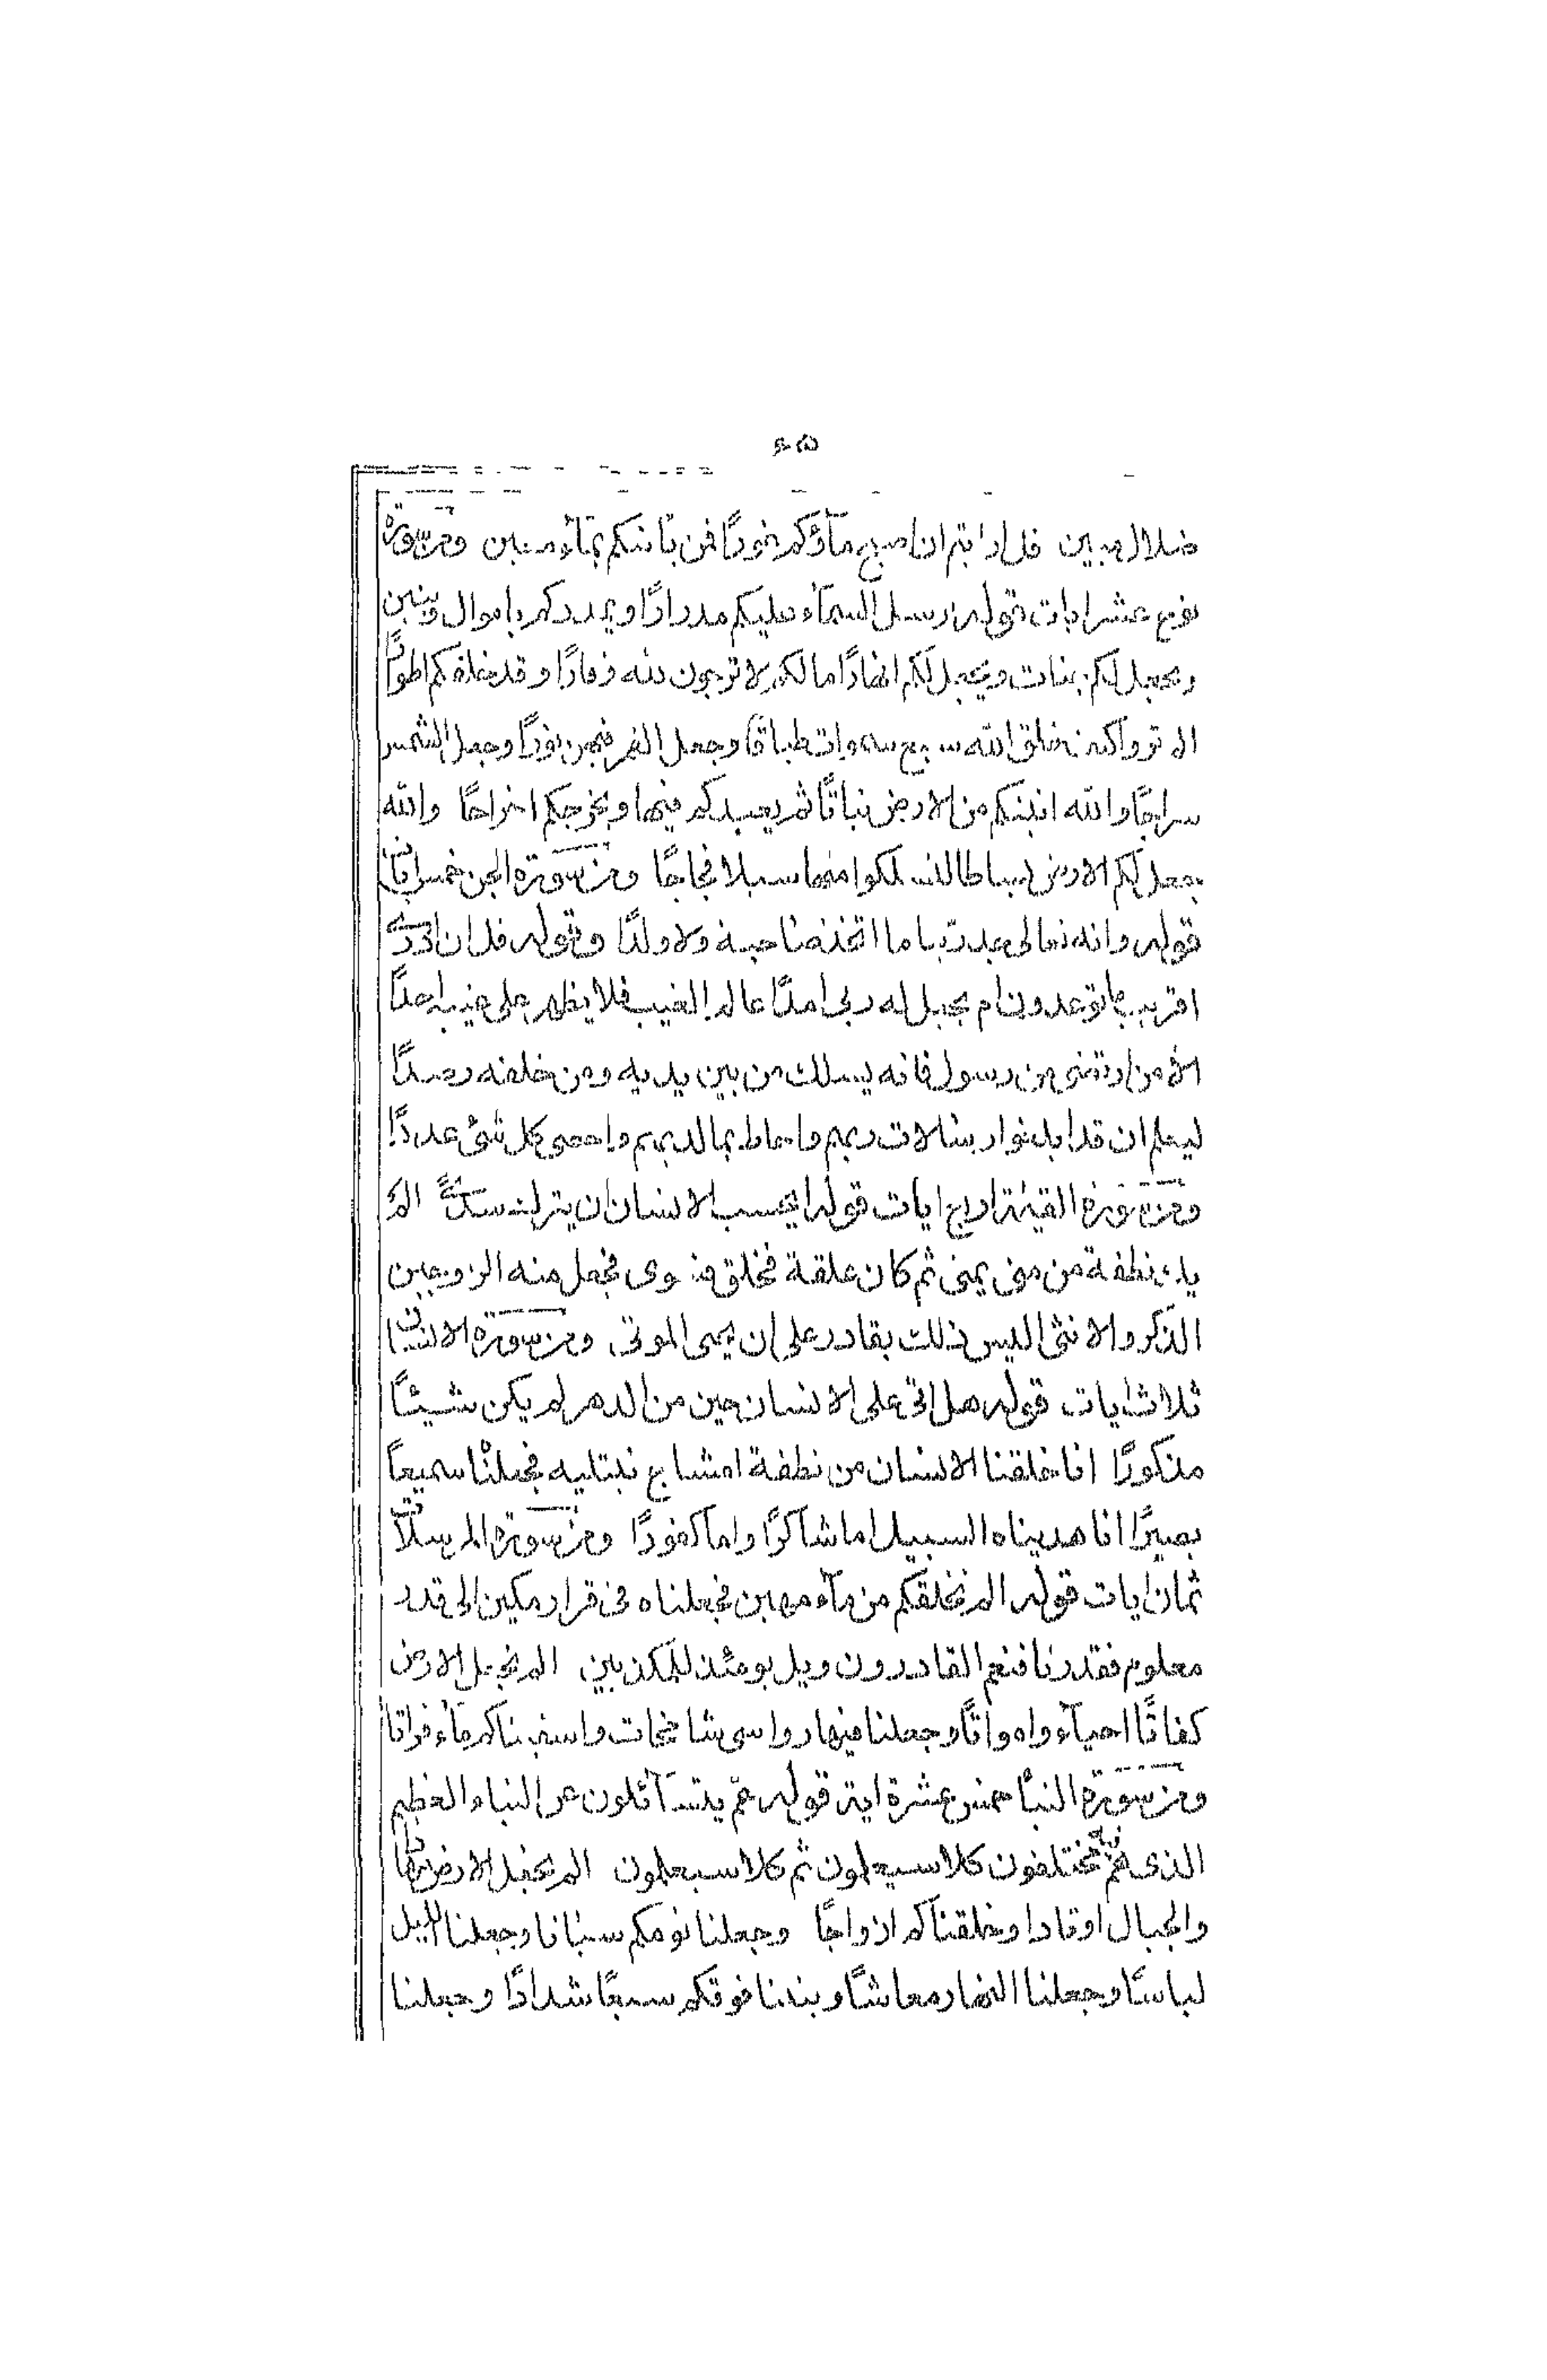 ضلال مبين قل ارايتم ان اصبح مآؤكم غورًا فمن ياتيكم بمآء معين ومن سورة
نوح عشر ايات قوله يرسل السمآء عليكم مدرارًا ويمددكم باموال وبنين
ويجعل لكم جنات ويجعل لكم انهارًا ما لكم لا ترجون لله وقارًا وقد خلقكم اطوارًا
الم تروا كيف خلق الله سبع سموات طباقًا وجعل القمر فيهن نورًا وجعل الشمس
سراجًا والله انبتكم من الارض نباتًا ثم يعيدكم فيها ويخرجكم اخراجًا والله
جعل لكم الارض بساطا لتسلكوا منها سبلا فجاجًا ومن سورة الجن خمس ايات
قوله وانه تعالى جد ربنا ما اتخذ صاحبة ولا ولدًا وقوله قل ان ادرى
اقريب ما توعدون ام يجعل له ربى امدًا عالم الغيب فلا يظهر على غيبه احدًا
الا من ارتضى من رسول فانه يسلك من بين يديه ومن خلفه رصدًا
ليعلم ان قد ابلغوا رسالات ربهم واحاط بما لديهم واحصى كل شئ عددًا
ومن سورة القيمة اربع ايات قوله ايحسب الانسان ان يترك سدًى الم
يك نطفة من منى يمنى ثم كان علقة فخلق فسوى فجعل منه الزوجين
الذكر والانثى اليس ذلك بقادر على ان يحيى الموتى ومن سورة الانسان
ثلاث ايات قوله هل اتى على الانسان حين من الدهر لم يكن شيئًا
مذكورًا انا خلقنا الانسان من نطفة امشاج نبتليه فجعلناه سميعًا
بصيرًا انا هديناه السبيل اما شاكرًا واما كفورًا ومن سورة المرسلات
ثمان ايات قوله الم نخلقكم من مآء مهين فجعلناه فى قرار مكين الى قدر
معلوم فقدرنا فنعم القادرون ويل يومئذ للمكذبين الم نجعل الارض
كفاتًا احيآء وامواتًا وجعلنا فيها رواسى شامخات واسقيناكم مآء فراتا
ومن سورة النبأ خمس عشرة اية قوله عم يتسآئلون عن النباء العظيم
الذى هم فيه مختلفون كلا سيعلمون ثم كلا سيعلمون الم نجعل الارض مهادًا
والجبال اوتادا وخلقناكم ازواجًا وجعلنا نومكم سباتا وجعلنا الليل
لباسًا وجعلنا النهار معاشًا وبنينا فوقكم سبعًا شدادًا وجعلنا